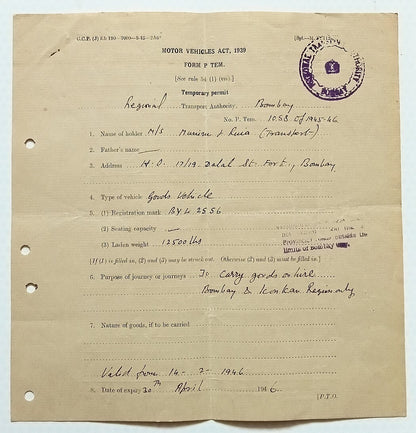 MOTOR VEHICLES ACT, 1939
FORM P TEM.
[See rule 54 (1) (vii).]
Temporary permit
REGIONAL TRANSPORT AUTHORITY BOMBAY
Regional Transport Authority, Bombay
No. P. Tem. 1058 of 1945-46
1. Name of holder M/s & Ruia (Transport)
2. Father's name —
3. Address H.O. 17/19 Dalal St. Fort, Bombay
4. Type of vehicle Goods Vehicle
5. (1) Registration mark BYL 2556
(2) Seating capacity —
(3) Laden weight 12500 lbs
limits of Bombay
[If (1) is filled in, (2) and (3) may be struck out. Otherwise (2) and (3) must be filled in.]
6. Purpose of journey or journeys To carry goods on hire
Bombay & Konkan Region only
7. Nature of goods, if to be carried
Valid from 14-2-1946
8. Date of expiry 30th April 1946.
[P.T.O.